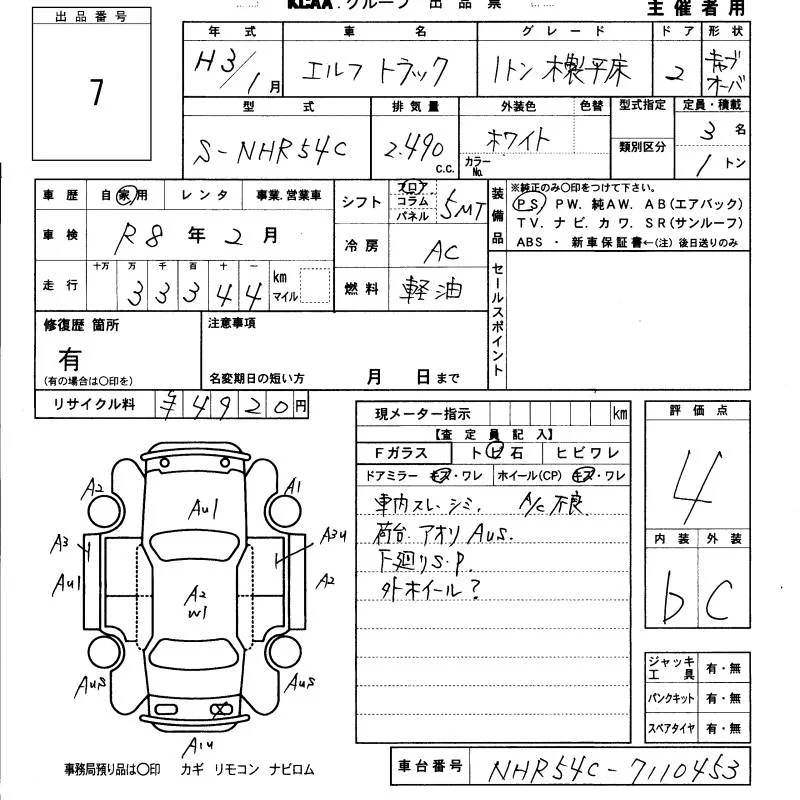 KCAA.グループ 出品票
主催者用
出品番号
7
年式 車名 グレード ドア 形状
H3/1月 エルフ トラック 1トン 木製平床 2 キャブオーバ
型式 排気量 外装色 色替 型式指定 定員・積載
S-NHR54C 2.490 c.c. ホワイト カラーNo. 類別区分 3名 1トン
車歴 自家用 レンタ 事業.営業車
車検 R8年2月
走行 十万 万 千 百 十 一 km マイル
33344
シフト フロア コラム パネル 5MT
冷房 AC
燃料 軽油
装備品
※純正のみ○印をつけて下さい。
PS PW. 純AW. AB(エアバック)
TV. ナビ. カワ. SR(サンルーフ)
ABS ・ 新車保証書←(注) 後日送りのみ
セールスポイント
修復歴 箇所
有
(有の場合は○印を)
注意事項
名変期日の短い方 月 日まで
リサイクル料 4920円
現メーター指示 km
【査定員記入】
Fガラス トビ石 ヒビワレ
ドアミラー キズ・ワレ ホイール(CP) キズ・ワレ
車内スレ.シミ. A/C不良
荷台.アオリ AUS.
下廻りS.P.
外ホイール?
評価点
4
内装 外装
b C
ジャッキ工具 有・無
パンクキット 有・無
スペアタイヤ 有・無
A2 AU1 A1
A3 A3U
AU1 A2 W1 A2
AUS AUS
A1U
事務局預り品は○印 カギ リモコン ナビロム
車台番号 NHR54C-7110453